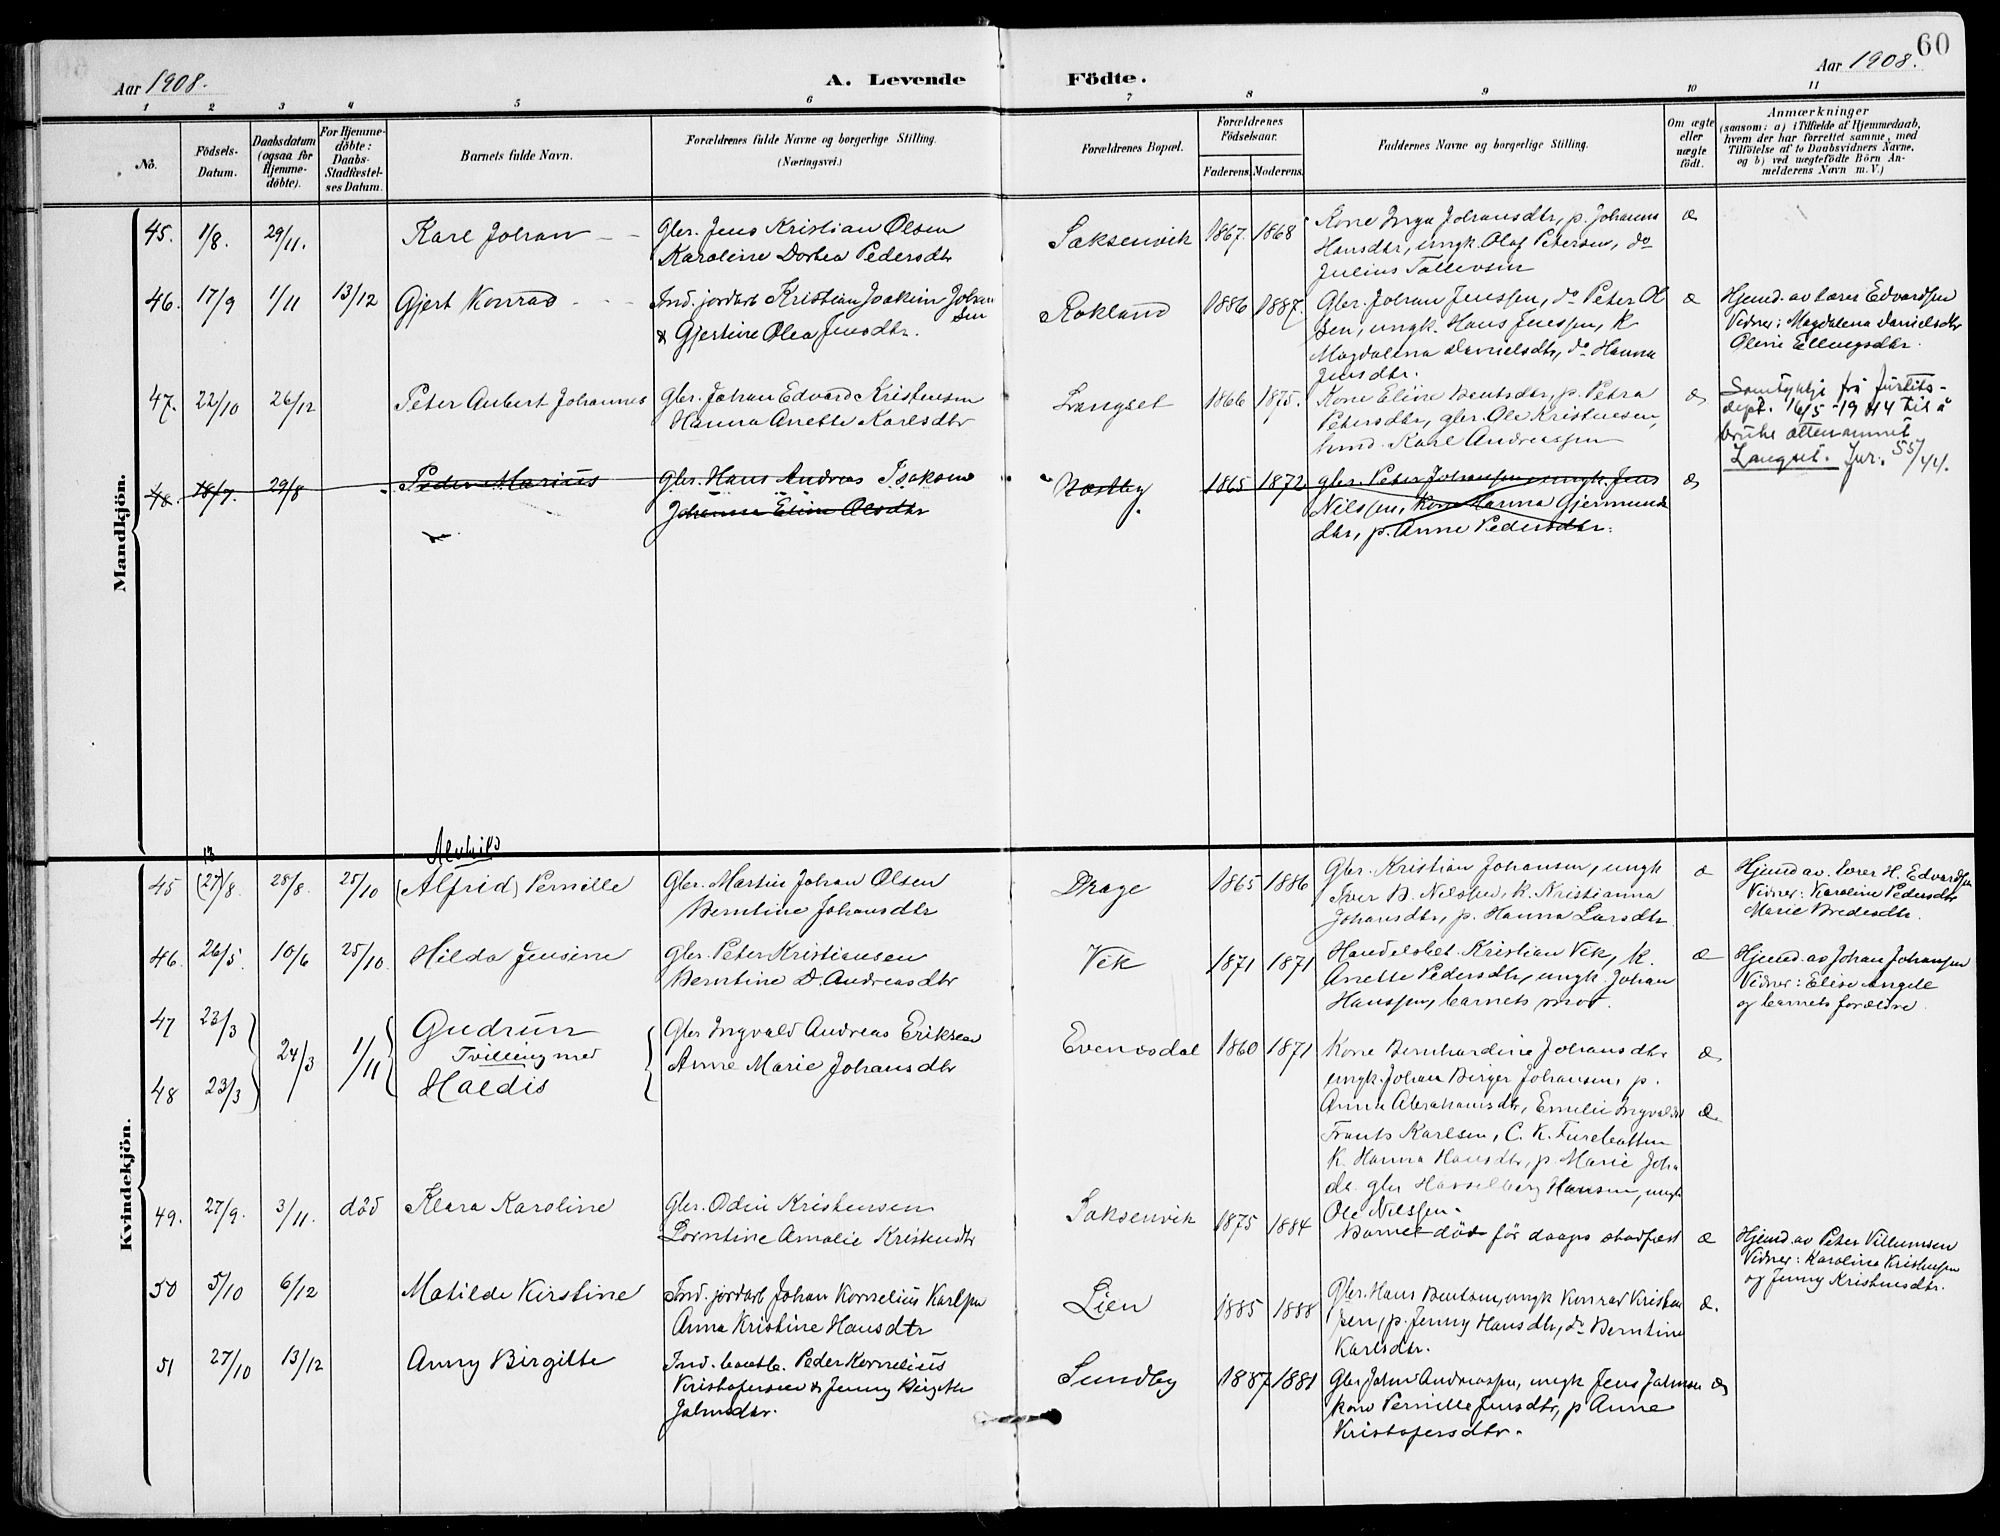 60
Aar 1908.
A. Levende Födte.
Aar 1908.
1 2 3 4 5 6 7 8 9 10 11
No.
Födsels-
Datum.
Daabsdatum
(ogsaa for
Hjemme-
döbte).
For Hjemme-
döbte:
Daabs-
Stadfæstel-
ses Datum.
Barnets fulde Navn.
Forældrenes fulde Navne og borgerlige Stilling.
(Næringsvei.)
Forældrenes Bopæl.
Forældrenes
Födselsaar.
Faderens. Moderens.
Faddernes Navne og borgerlige Stilling.
Om ægte
eller
uægte
födt.
Anmærkninger
(saasom: a) i Tilfælde af Hjemmedaab,
hvem der har forrettet samme, med
Tilföielse af to Daabsvidners Navne,
og b) ved uægtefödte Börn An-
melderens Navn m. V.)
Mandkjön.
45. 1/8. 29/11. Karl Johan
Gbr. Jens Kristian Olsen
Karoline Dortea Pedersdtr
Saksenvik 1867. 1868
Kone Inga Johansdtr, p. Johanna
Hansdtr, ungk. Olaf Petersen, do
Julius Tollevsen
æ
46. 17/9 1/11 13/12 Gjert Konrad
Ind. jordarb Kristian Joakim Johan
sen
& Gjertine Olea Jensdtr.
Rokland 1886 1887.
Gbr. Johan Jenssen, do Peter Ol
sen, ungk. Hans Jenssen, K
Magdalena Danielsdtr, do Hanna
Jensdtr.
æ
Hjemd. av lærer Edvardsen
Vidner: Magdalena Danielsdtr
Oline Ellingsdtr.
47. 22/10 26/12 Peter Aubert Johannes
Gbr. Johan Edvard Kristensen
Hanna Anette Karlsdtr
Langset 1866 1875.
Kone Eline Bentsdtr, p. Petra
Petersdtr, gbr. Ole Kristensen,
Karl Andreassen
æ
Samtykkje frå Justits-
dept. 16/5-1944 til å
bruke ættenamnet
Langset. Jur. 55/44.
48. 18/7. 29/8 Peder Marius
Gbr. Hans Andreas Isaksen
Johanna Eline Olsdtr
Næstby 1865 1872
gbr. Peter Johansen, ungk. Jens
Nilssen, kone Hanna Gjermunds
dtr, p. Anne Pedersdtr.
æ
Kvindekjön.
Alvhild
45 (27)/8 28/8. 25/10 (Alfrid) Pernille
Gbr. Martin Johan Olsen
Berntine Johansdtr
Drage 1865 1886
Gbr. Kristian Johansen, ungk
Iver B. Nilssen, K. Kristianna
Johansdtr, p. Hanna Larsdtr
æ
Hjemd av. lærer H. Edvardsen
Vidner: Karoline Pedersdtr
Marie Bredesdtr.
46. 26/5. 10/6 25/10. Hilda Jensine
Gbr. Peter Kristiansen
Berntine D. Andreasdtr
Vik 1871 1871
Handelsbet. Kristian Vik, K.
Anette Pedersdtr, ungk. Johan
Hanssen, barnets mor.
æ
Hjemd. av Johan Johansen
Vidner: Elise Angele
og barnets forældre.
47 23/3
48 23/3
24/3 1/11
Gudrun
Tvilling med
Haldis
Gbr Ingvald Andreas Eriksen
Anne Marie Johansdtr
Evenesdal 1860 1871
Kone Bernhardine Johansdtr
ungk. Johan Birger Johansen, p.
Anna Abrahamsdtr, Emelie Ingvaldsd
Frants Karlsen, C. K. Furebotten
K. Hanna Hansdtr, p. Marie Joha
ds. gbr Hasselberg Hansen, ungk
Ole Nilssen.
æ
æ
49. 27/9. 3/11. död Klara Karoline
Gbr. Odin Kristensen
Lorntine Amalie Kristensdtr
Saksenvik 1875 1884
Barnet död för daaps stadfæst
æ
Hjemd. av Peter Villumsen
Vidner: Karoline Kristensen
og Jenny Kristensdtr.
50 5/10 6/12 Matilde Kirstine
Ind. jordarb Johan Kornelius Karlsen
Anna Kristine Hansdtr
Lien 1885 1888
Gbr. Hans Bentsen, ungk Konrad Kristian
sen, p. Jenny Hansdtr, do Berntine
Karlsdtr.
æ.
51 27/10 13/12 Anny Birgitte
Ind. Peder Kornelius
Kristofersen & Jenny Birgitte
Jahnsdtr.
Sundby 1887 1881
Gbr Jahn Andreassen, ungk Jens Jahnsen
kone Pernille Jensdtr, p Anne
Kristofersdtr.
æ